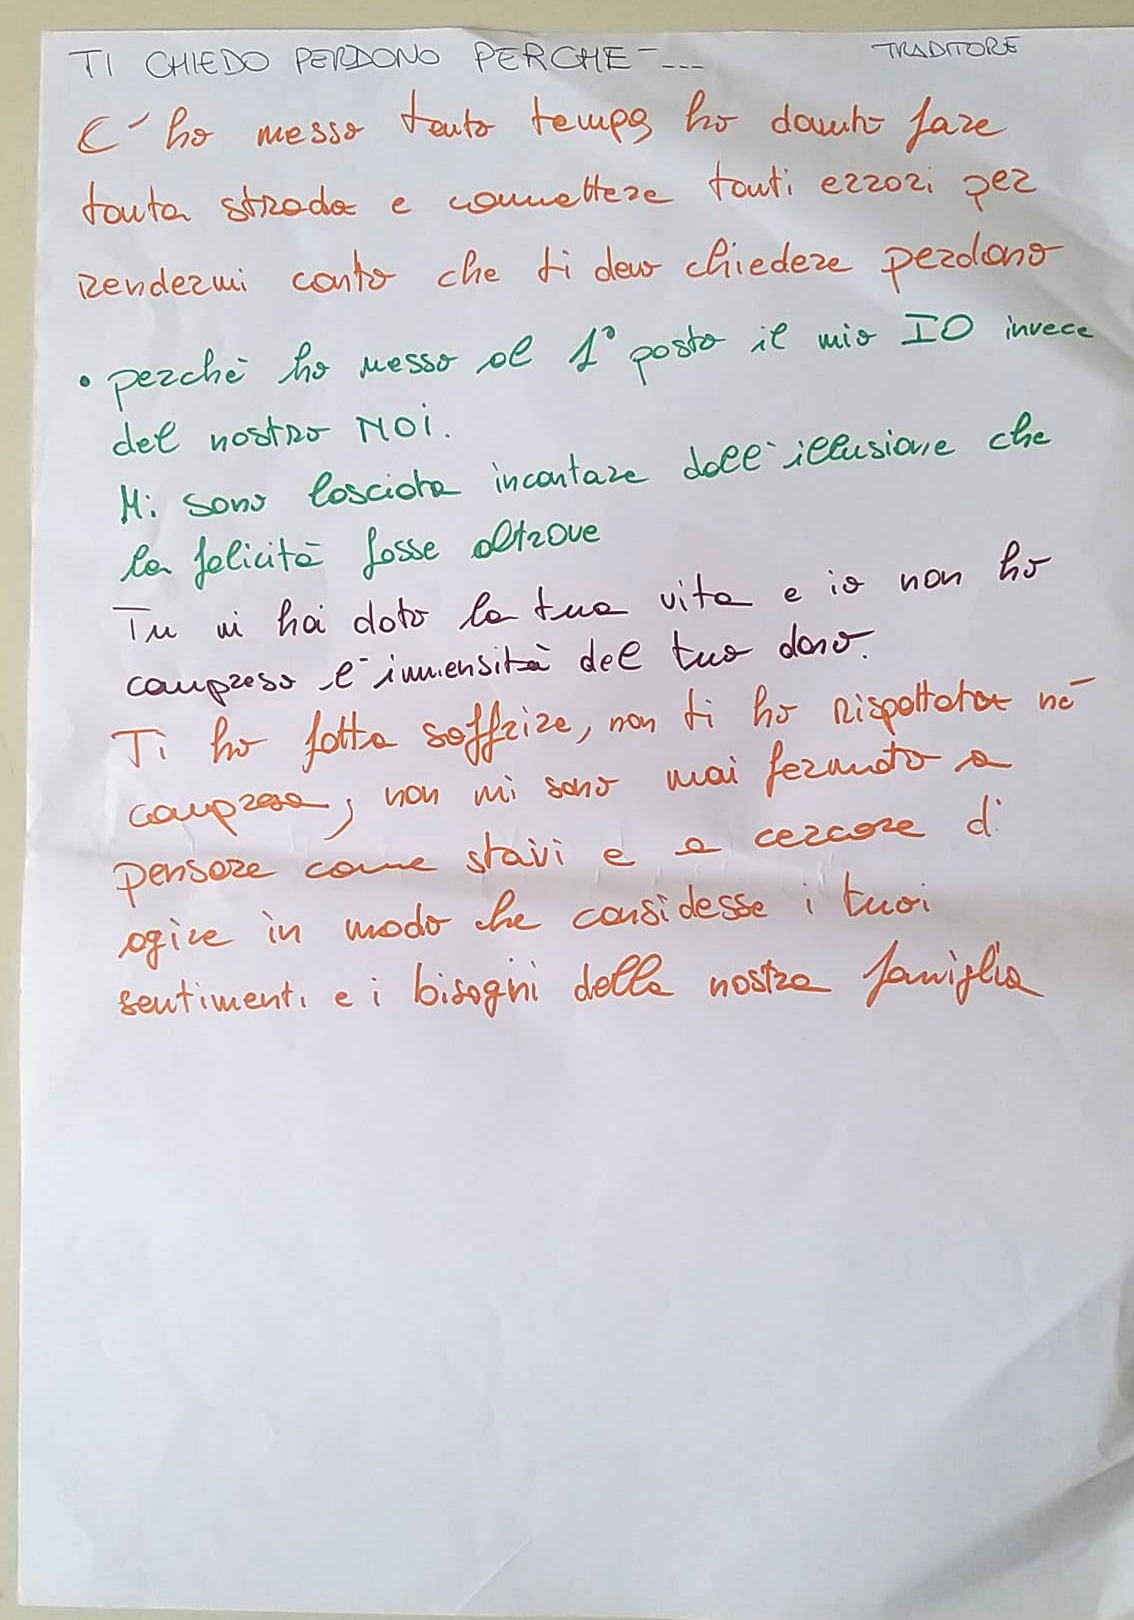 TI CHIEDO PERDONO PERCHE - ... TRADITORE
C'ho messo tanto tempo ho dovuto fare
tanta strada e commettere tanti errori per
rendermi conto che ti devo chiedere perdono
• perchè ho messo al 1° posto il mio IO invece
del nostro NOi.
Mi sono lasciata incantare dall'illusione che
la felicità fosse altrove
Tu mi hai dato la tua vita e io non ho
compreso l'immensità del tuo dono.
Ti ho fatta soffrire, non ti ho rispettata nè
compresa, non mi sono mai fermato a
pensare come stavi e a cercare di
agire in modo che considesse i tuoi
sentimenti e i bisogni della nostra famiglia